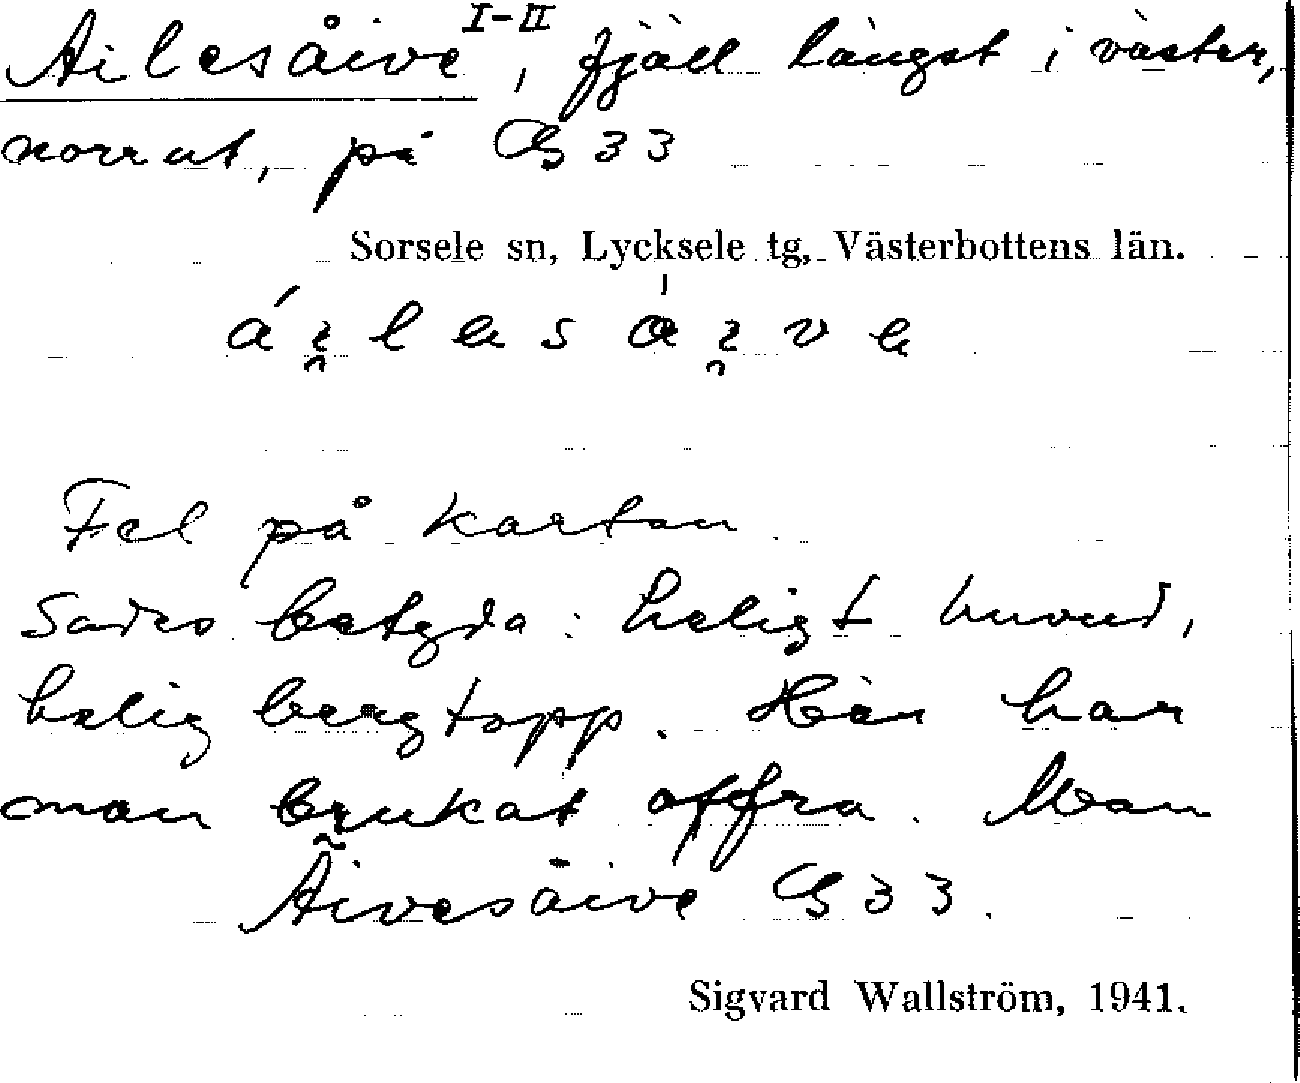 Ailesåive I-II, fjäll längst i väster,
norrut, på G 33
Sorsele sn, Lycksele tg, Västerbottens län.
Fel på kartan
Sades betyda: heligt huvud,
helig bergtopp. Här har
man brukat offra.
Äivesäive G 33.
Sigvard Wallström, 1941.